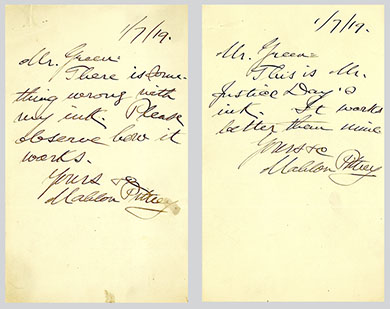 1/7/19.
Mr. Green:
There is some-
thing wrong with
my ink. Please
observe how it
works.
Yours &c
Mahlon Pitney
1/7/19.
Mr. Green:
This is Mr.
Justice Day's
ink. It works
better than mine
Yours &c
Mahlon Pitney